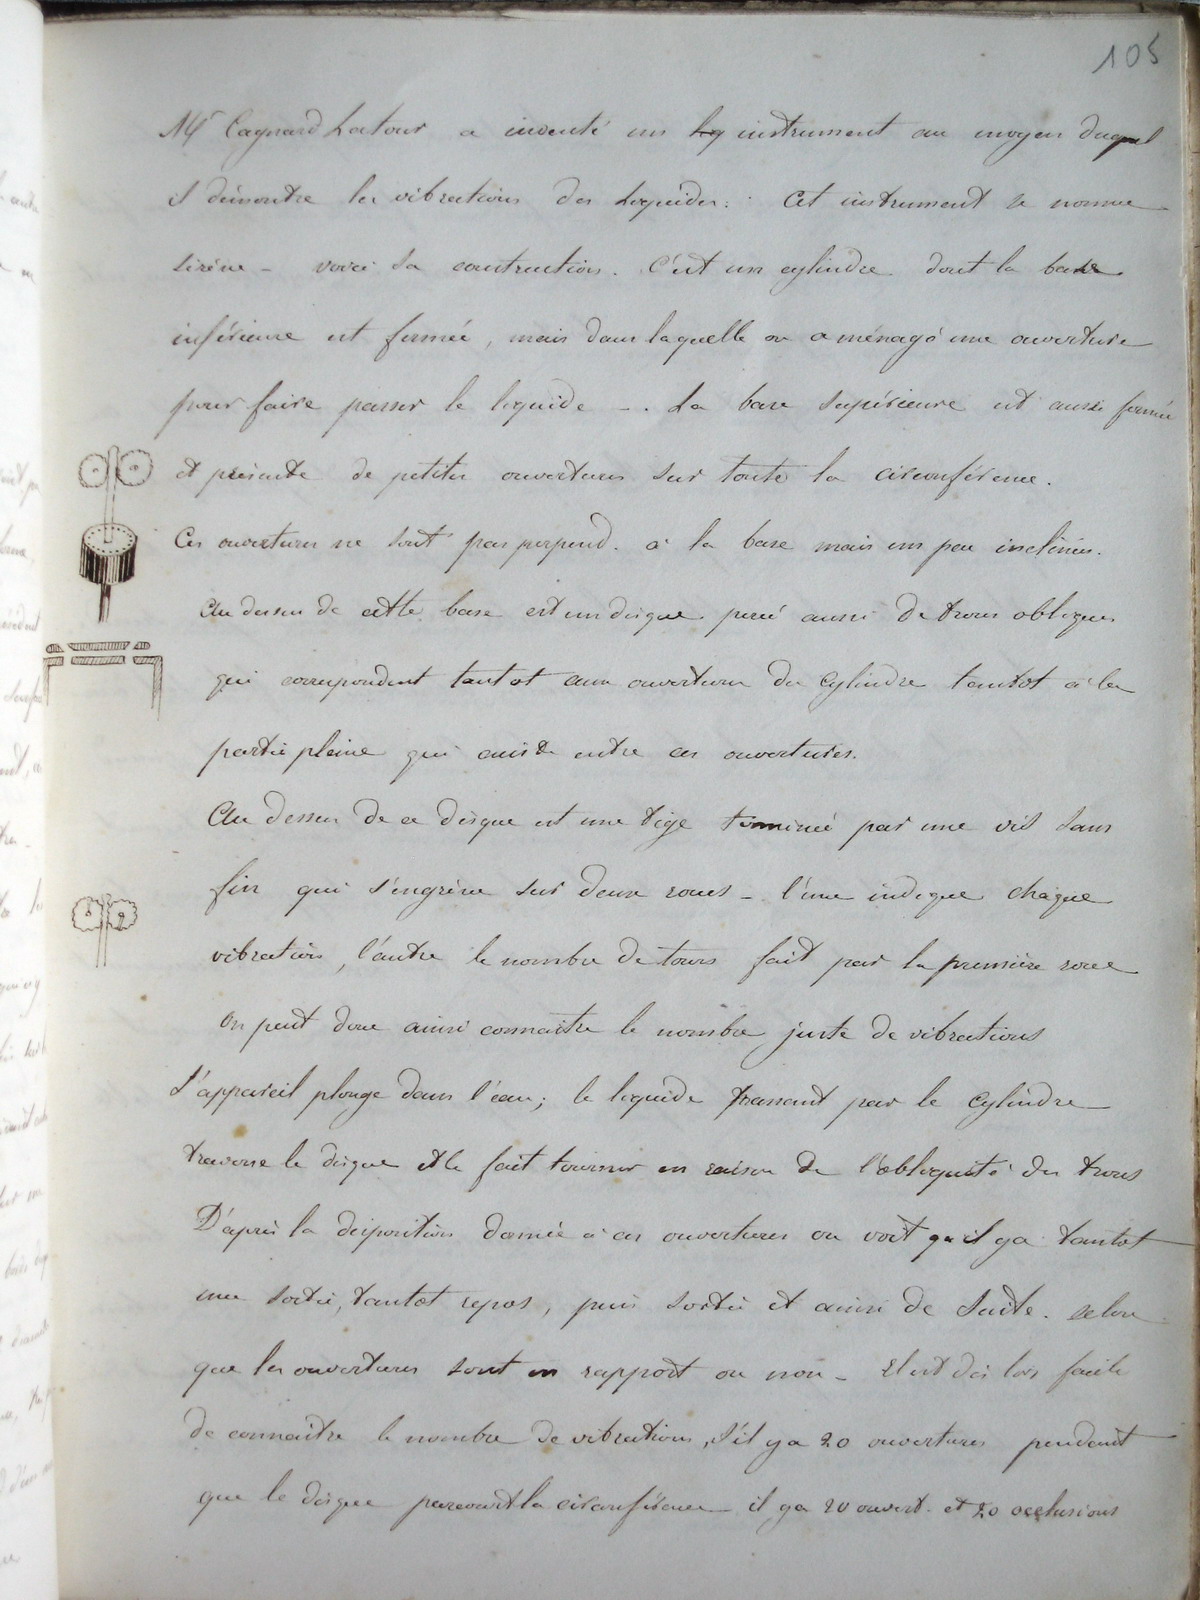 105
Mr Cagnard Latour a inventé un instrument au moyen duquel
il démontre les vibrations des liquides. Cet instrument se nomme
sirène - voici sa construction. C'est un cylindre dont la base
inférieure est fermée, mais dans laquelle on a ménagé une ouverture
pour faire passer le liquide -. La base supérieure est aussi fermée
et présente de petites ouvertures sur toute la circonférence.
Ces ouvertures ne sont pas perpend. à la base mais un peu inclinées.
Au dessus de cette base est un disque percé aussi de trous obliques
qui correspondent tantot aux ouvertures du cylindre tantot à la
partie pleine qui existe entre ces ouvertures.
Au dessus de ce disque est une tige terminée par une vis sans
fin qui s'engrène sur deux roues - l'une indique chaque
vibration, l'autre le nombre de tours fait par la première roue
On peut donc ainsi connaitre le nombre juste de vibrations
L'appareil plonge dans l'eau; le liquide passant par le cylindre
traverse le disque et le fait tourner en raison de l'obliquité des trous
D'après la disposition donnée à ces ouvertures on voit qu'il y a tantot
une sortie, tantot repos, puis sortie et ainsi de suite. selon
que les ouvertures sont en rapport ou non - Il est dès lors facile
de connaître le nombre de vibrations, s'il y a 20 ouvertures pendant
que le disque parcourt la circonférence il y a 20 ouvert. et 20 occlusions